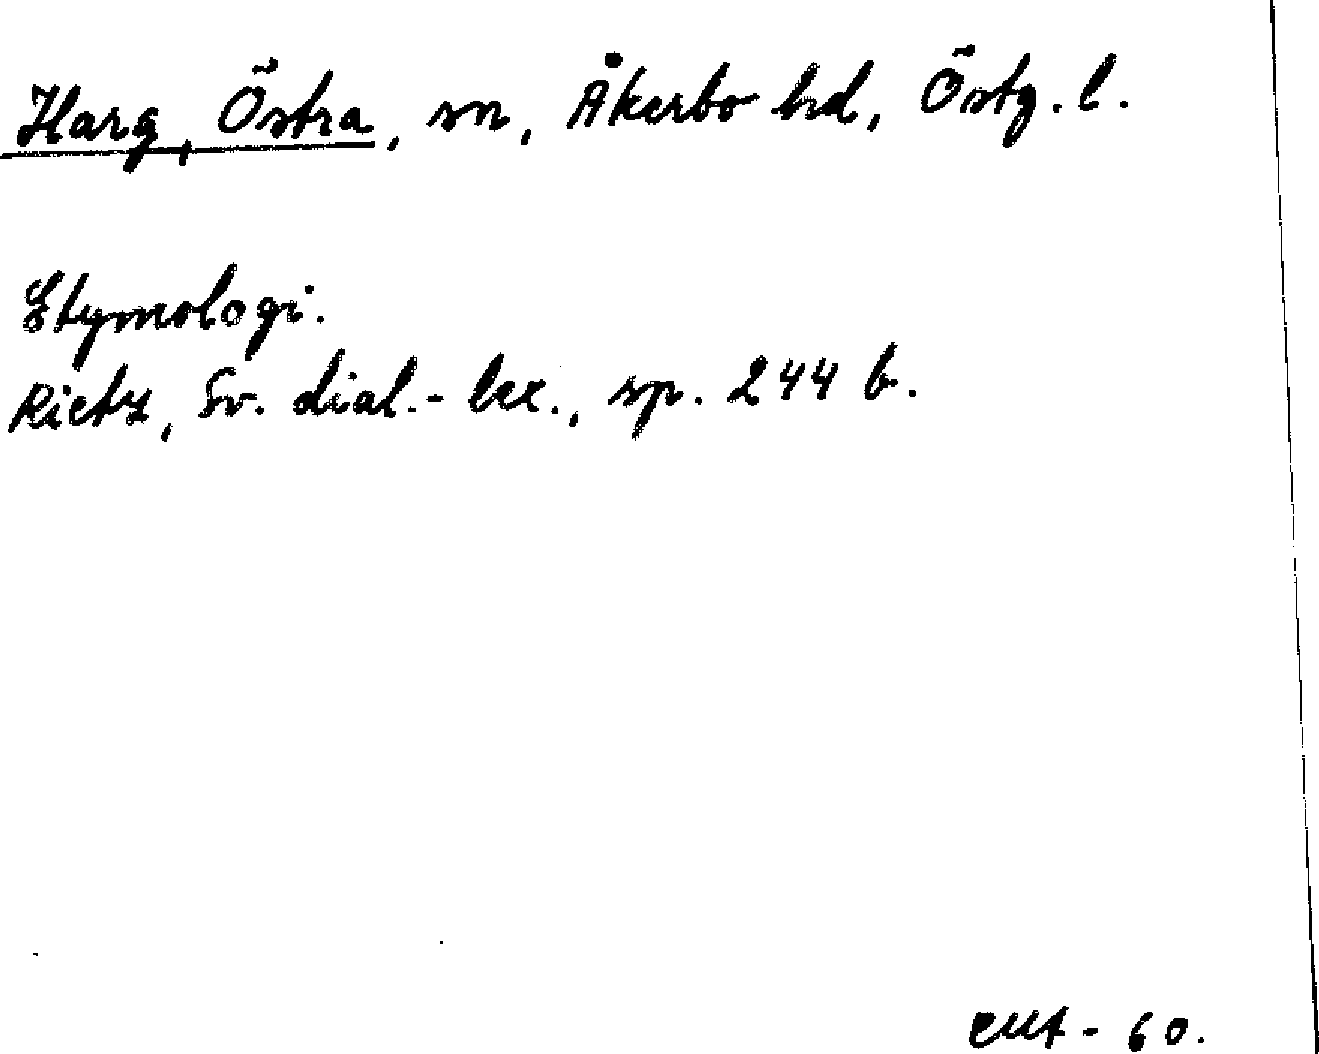 Harg, Östra, sn, Åkerbo hd, Östg. l.
Etymologi.
Rietz, Sv. dial.-lex., sp. 244 b.
- 60.